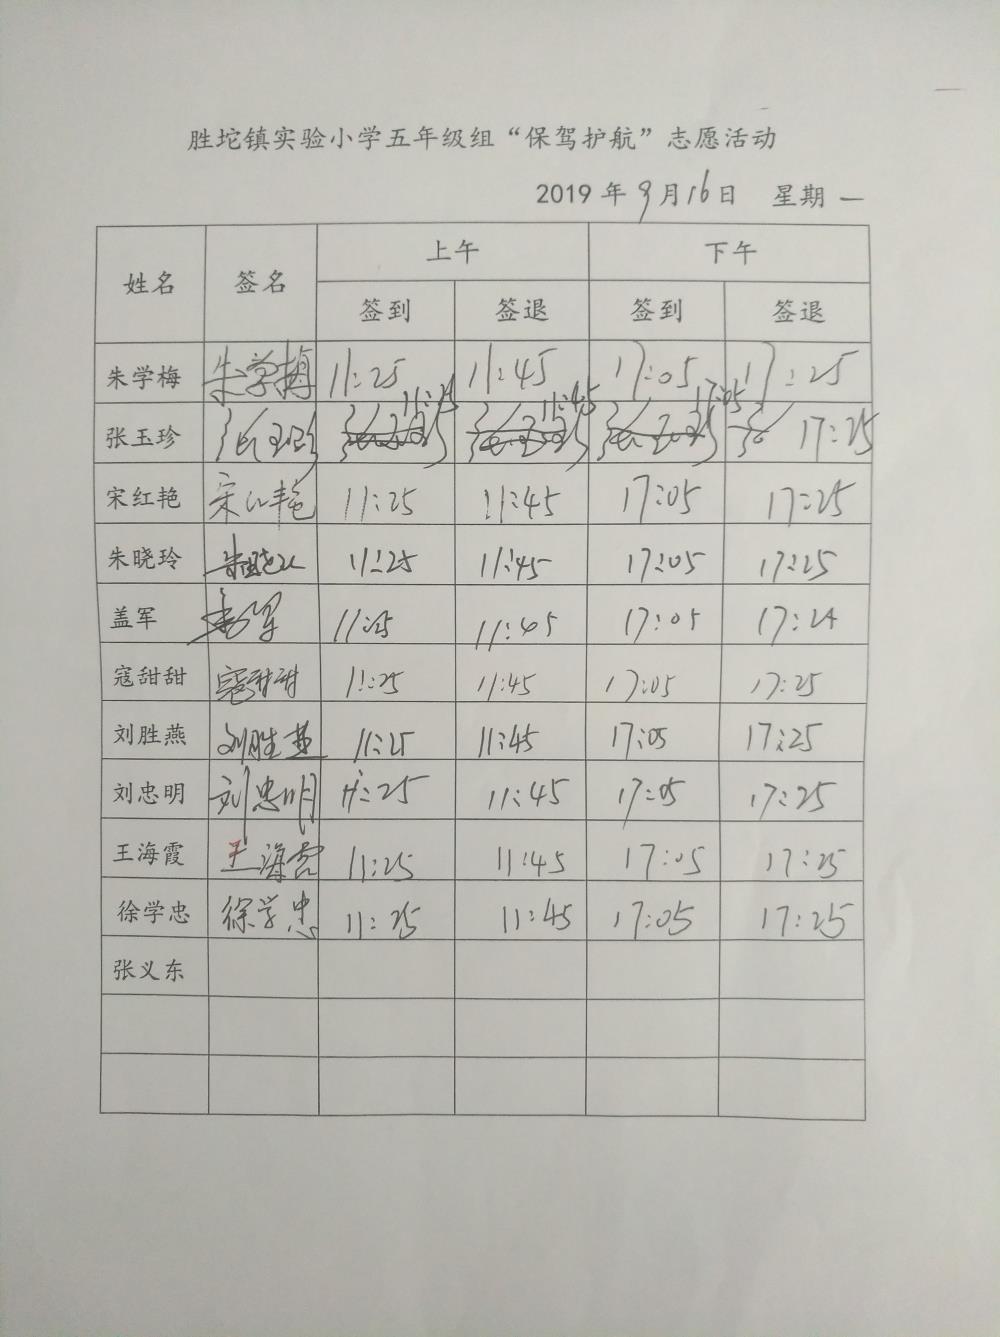 胜坨镇实验小学五年级组“保驾护航”志愿活动
2019年9月16日 星期一
姓名 签名 上午 下午
签到 签退 签到 签退
朱学梅 朱学梅 11:25 11:45 17:05 17:25
张玉珍 张玉珍 11:25 11:45 17:05 17:25
宋红艳 宋红艳 11:25 11:45 17:05 17:25
朱晓玲 朱晓玲 11:25 11:45 17:05 17:25
盖军 盖军 11:25 11:45 17:05 17:24
寇甜甜 寇甜甜 11:25 11:45 17:05 17:25
刘胜燕 刘胜燕 11:25 11:45 17:05 17:25
刘忠明 刘忠明 11:25 11:45 17:05 17:25
王海霞 王海霞 11:25 11:45 17:05 17:25
徐学忠 徐学忠 11:25 11:45 17:05 17:25
张义东